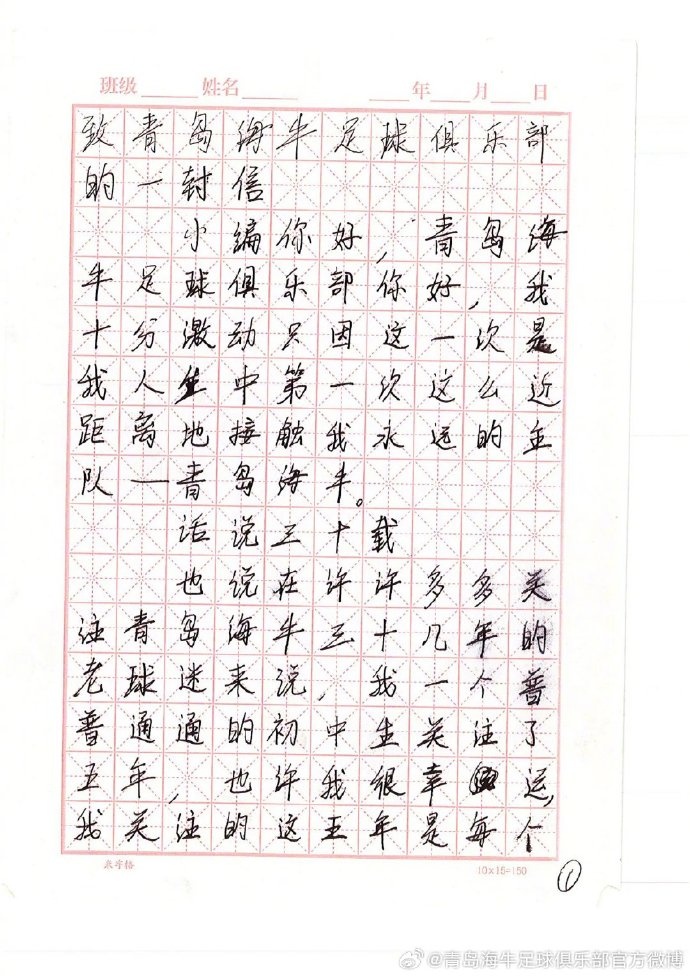 班级 姓名 年 月 日
致青岛海牛足球俱乐部
的一封信
小编你好，青岛海
牛足球俱乐部你好，我
十分激动只因这一次是
我人生中第一次这么近
距离地接触我永远的主
队—青岛海牛。
话说三十载
也说在许许多多关
注青岛海牛三十几年的
老球迷来说，我一个普
普通通的初中生关注了
五年，也许我很幸运，
我关注的这五年是每个
米字格
10×15=150
①
@青岛海牛足球俱乐部官方微博